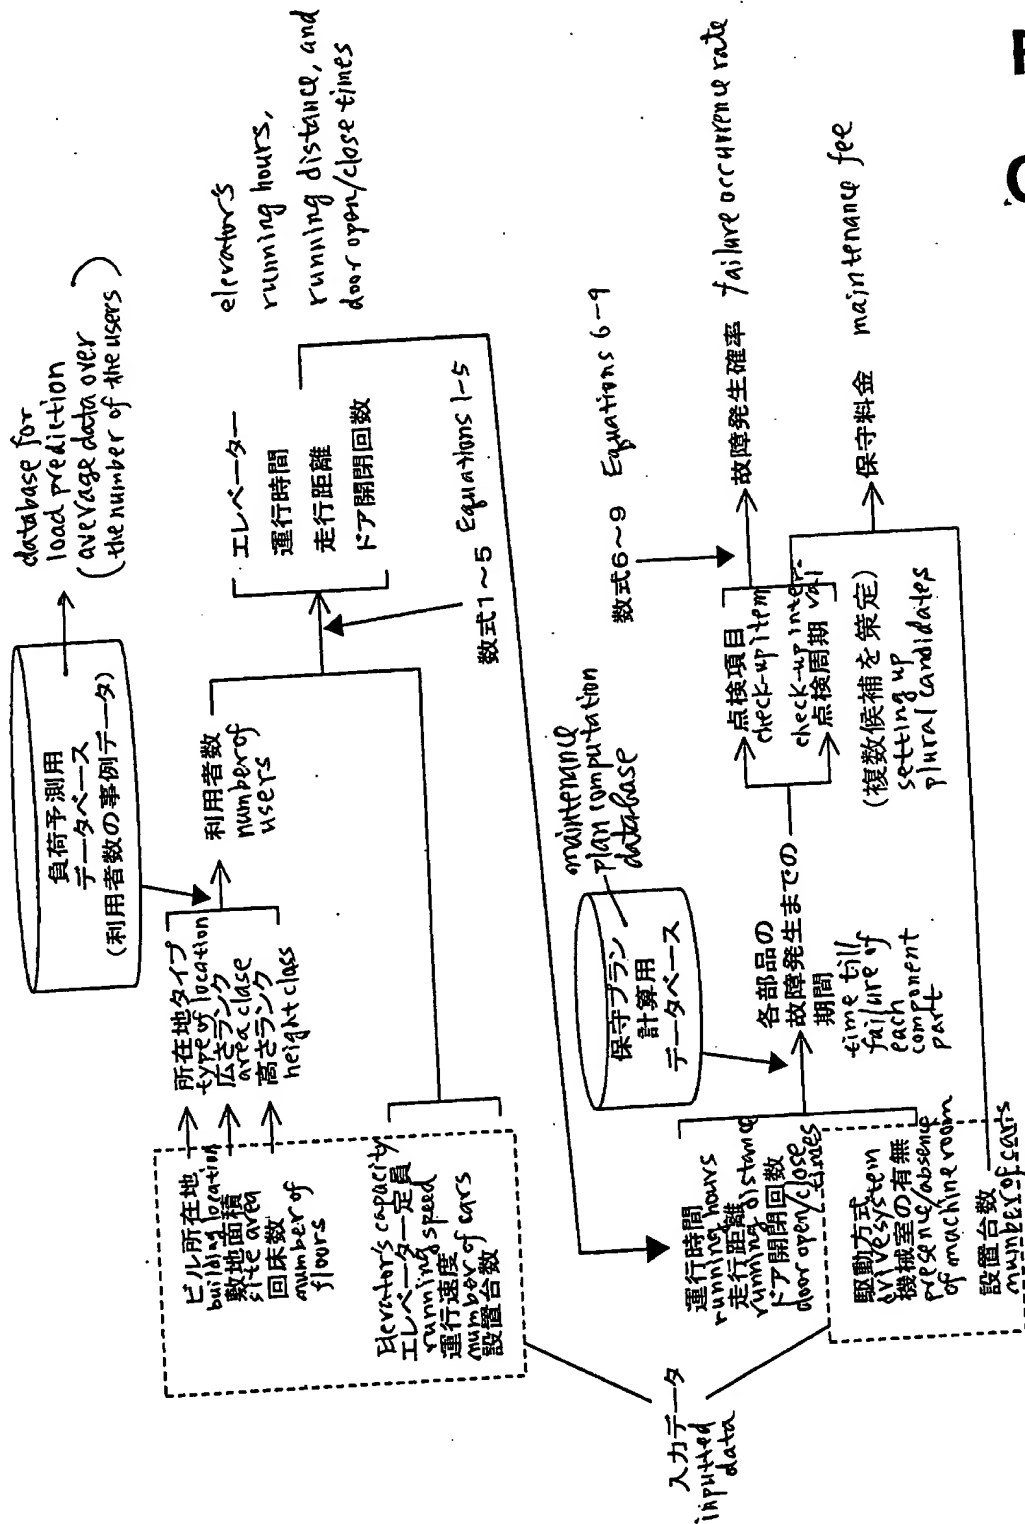 負荷予測用
データベース
(利用者数の事例データ)
database for
load prediction
(average data over
the number of the users)
ビル所在地
building location
敷地面積
site area
回床数
number of
floors
所在地タイプ
type of location
広さランク
area clase
高さランク
height class
利用者数
number of
users
Elevator's capacity
エレベーター定員
running speed
運行速度
number of cars
設置台数
エレベーター
運行時間
走行距離
ドア開閉回数
elevator's
running hours,
running distance, and
door open/close times
数式1~5 Equations 1-5
入力データ
inputted
data
運行時間
running hours
走行距離
running distance
ドア開閉回数
door open/close
times
駆動方式
drive system
機械室の有無
presence/absence
of machine room
設置台数
number of cars
保守プラン
計算用
データベース
maintenance
plan computation
database
各部品の
故障発生までの
期間
time till
failure of
each
component
part
点検項目
check-up item
check-up inter-
点検周期 val
(複数候補を策定)
setting up
plural candidates
数式6~9 Equations 6-9
故障発生確率 failure occurrence rate
保守料金 maintenance fee